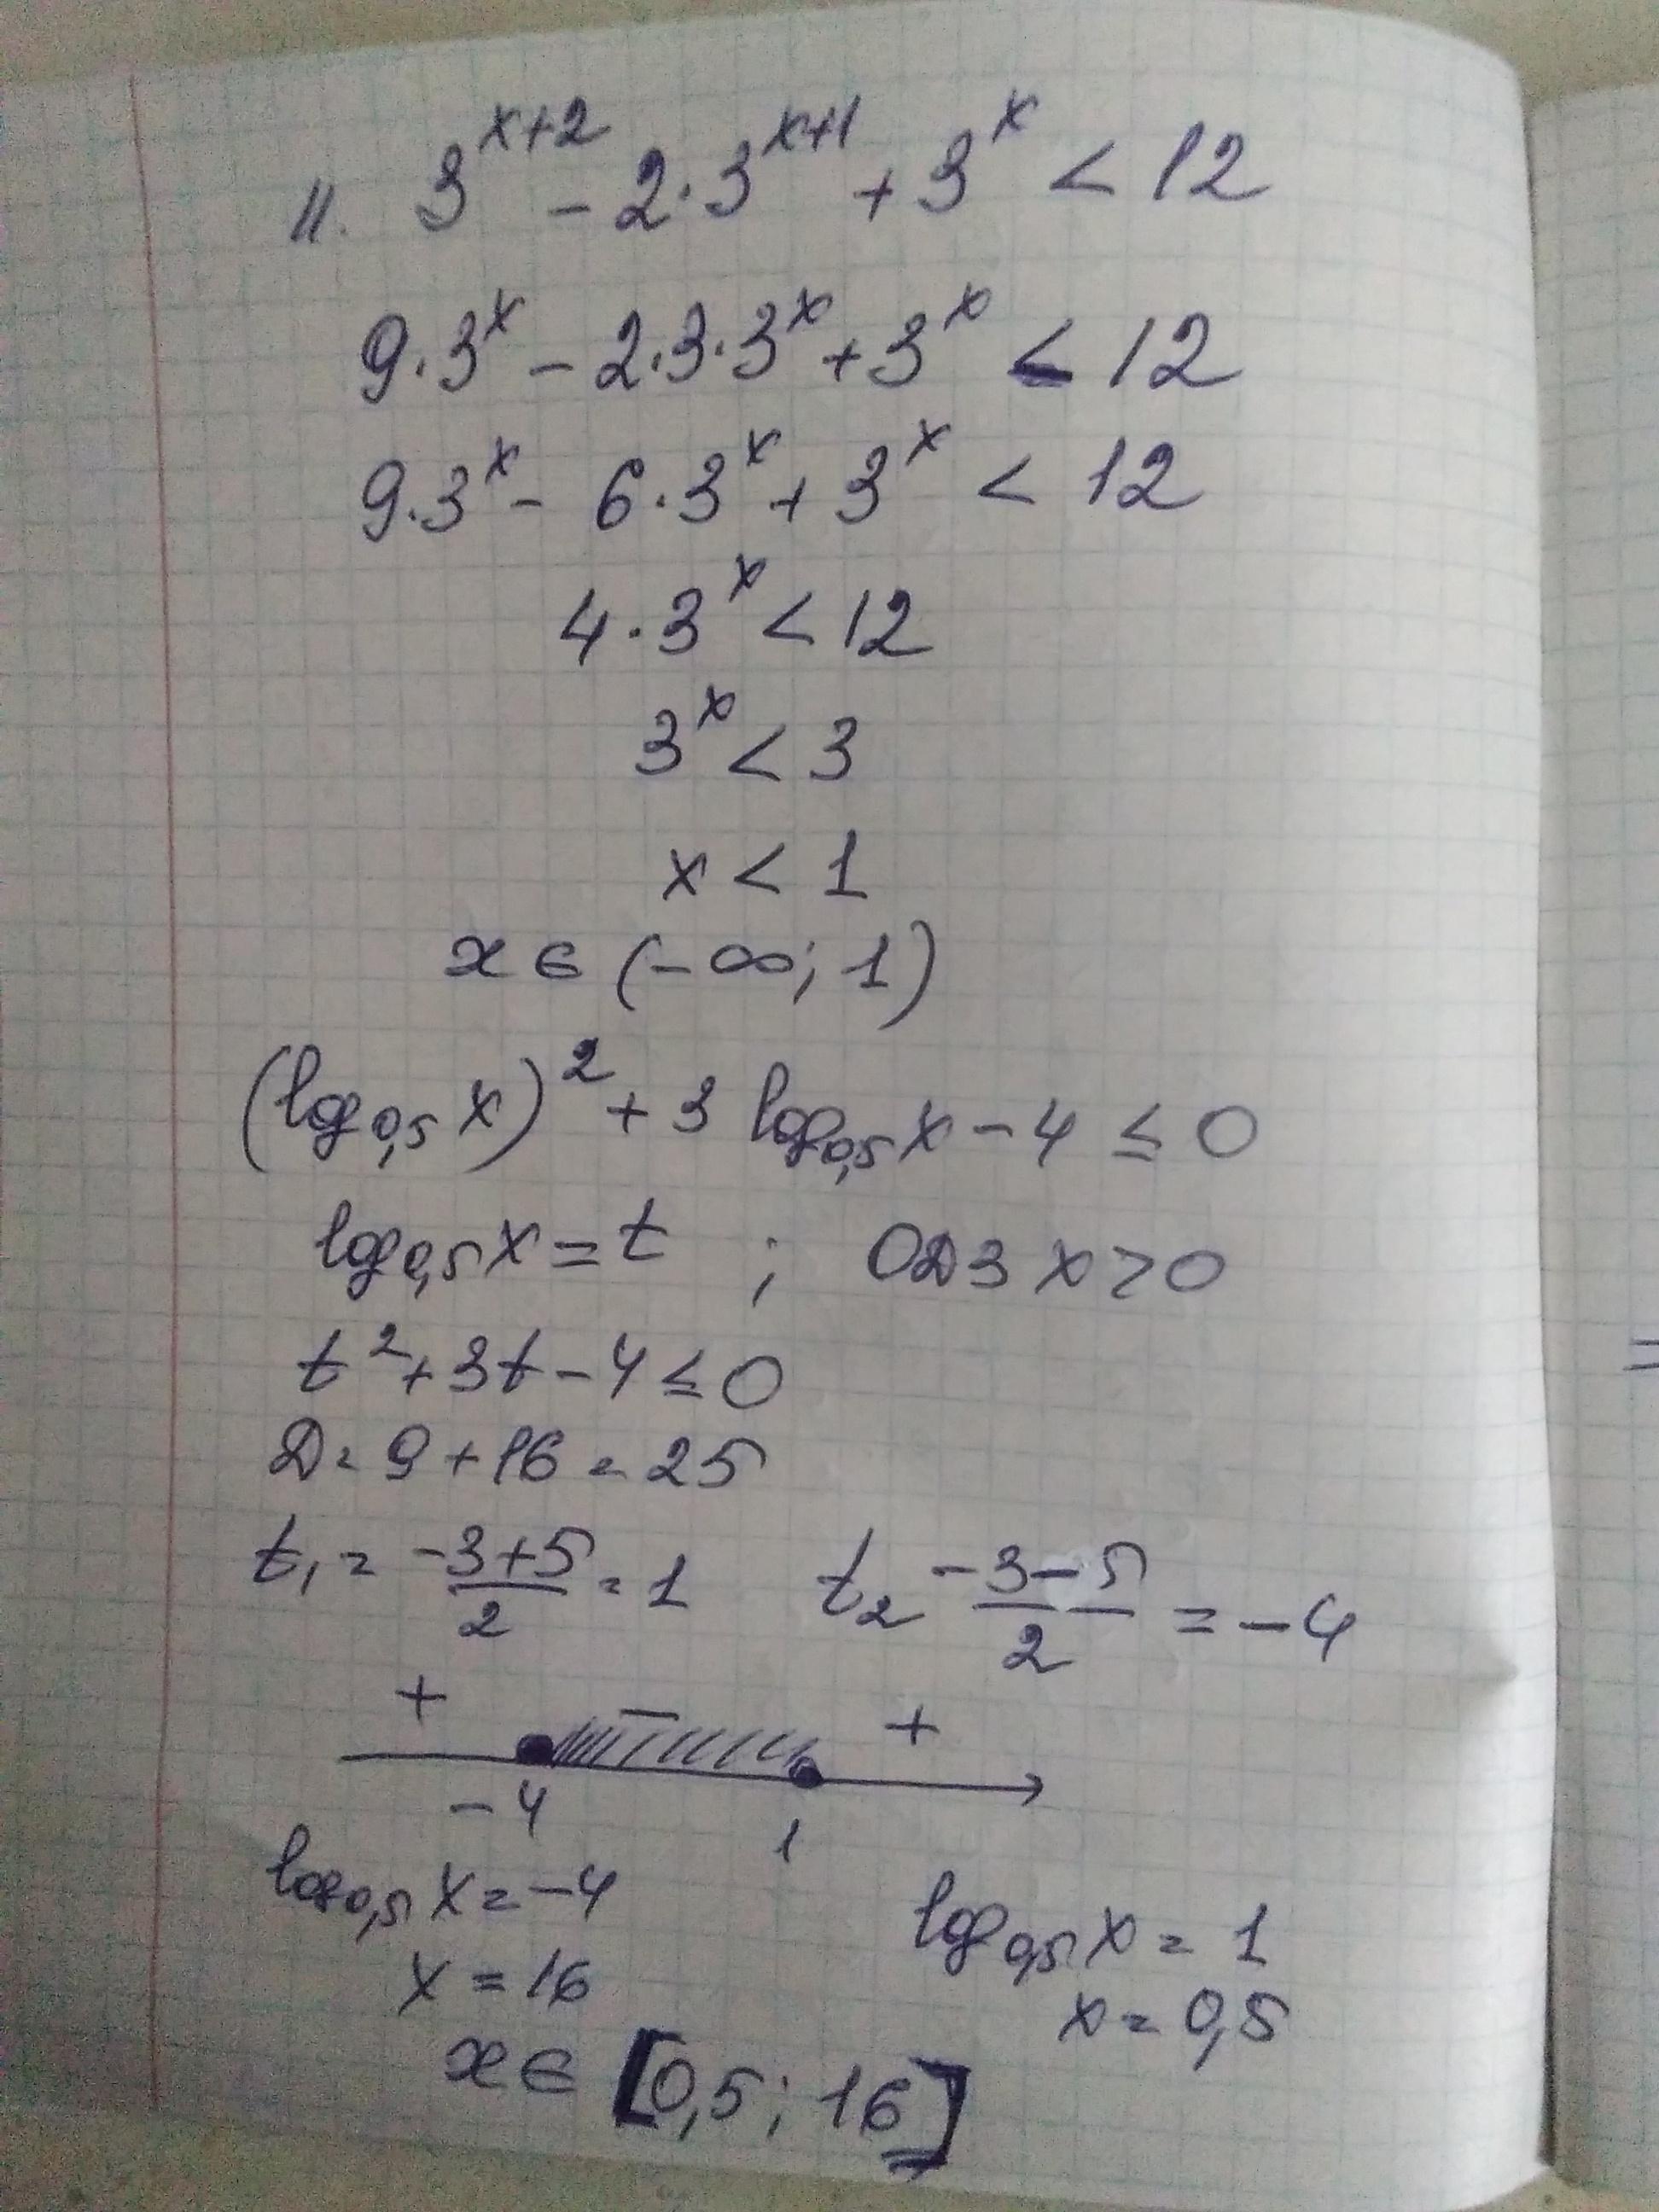 11. 3^{x+2} - 2·3^{x+1} + 3^x < 12
9·3^x - 2·3·3^x + 3^x < 12
9·3^x - 6·3^x + 3^x < 12
4·3^x < 12
3^x < 3
x < 1
x ∈ (-∞; 1)
(log_{0,5} x)^2 + 3 log_{0,5} x - 4 ≤ 0
log_{0,5} x = t ; ОДЗ x > 0
t^2 + 3t - 4 ≤ 0
D = 9 + 16 = 25
t_1 = \frac{-3+5}{2} = 1 t_2 \frac{-3-5}{2} = -4
+ - +
-4 1
log_{0,5} x = -4 log_{0,5} x = 1
x = 16 x = 0,5
x ∈ [0,5; 16]